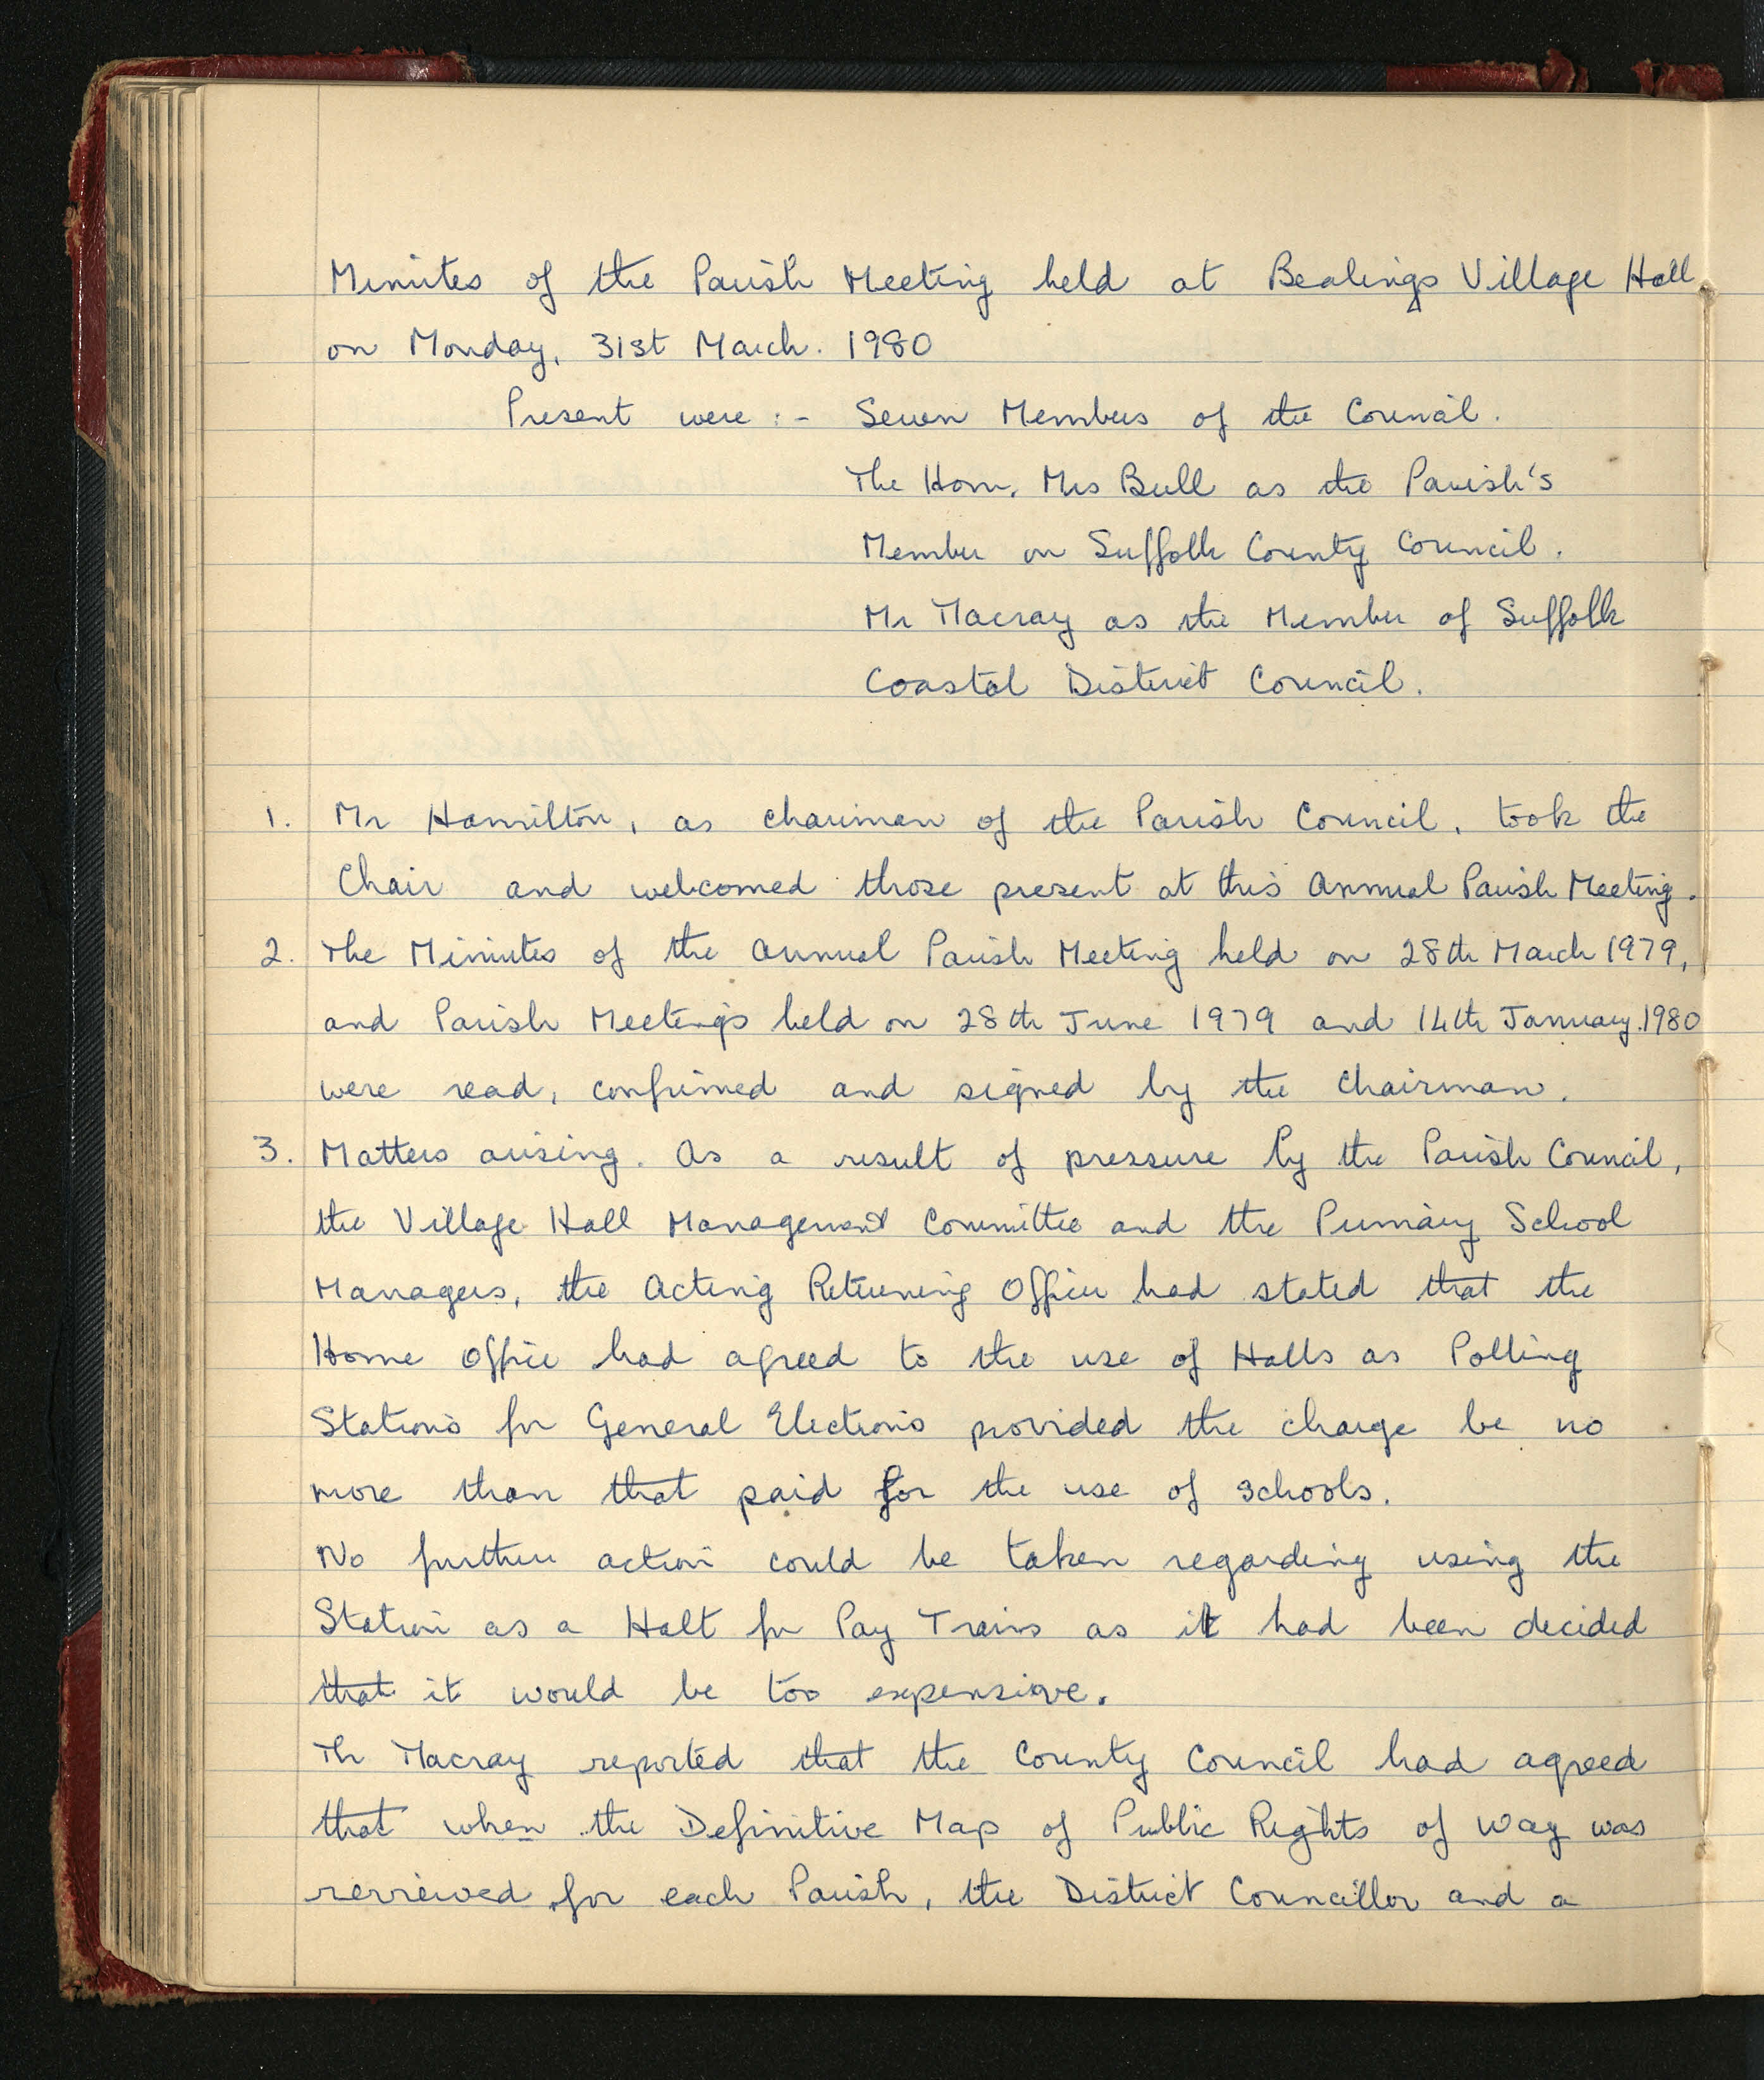 Minutes of the Parish Meeting held at Bealings Village Hall
on Monday, 31st March. 1980
Present were :- Seven Members of the Council.
The Hon. Mrs Bull as the Parish's
Member on Suffolk County Council.
Mr Macray as the Member of Suffolk
Coastal District Council.
1. Mr Hamilton, as chairman of the Parish Council, took the
Chair and welcomed those present at this Annual Parish Meeting.
2. The Minutes of the Annual Parish Meeting held on 28th March 1979,
and Parish Meetings held on 28th June 1979 and 14th January.1980
were read, confirmed and signed by the Chairman.
3. Matters arising. As a result of pressure by the Parish Council,
the Village Hall Management Committee and the Primary School
Managers, the Acting Returning Officer had stated that the
Home Office had agreed to the use of Halls as Polling
Stations for General Elections provided the charge be no
more than that paid for the use of schools.
No further action could be taken regarding using the
Station as a Halt for Pay Trains as it had been decided
that it would be too expensive.
Mr Macray reported that the County Council had agreed
that when the Definitive Map of Public Rights of Way was
reviewed for each Parish, the District Councillor and a